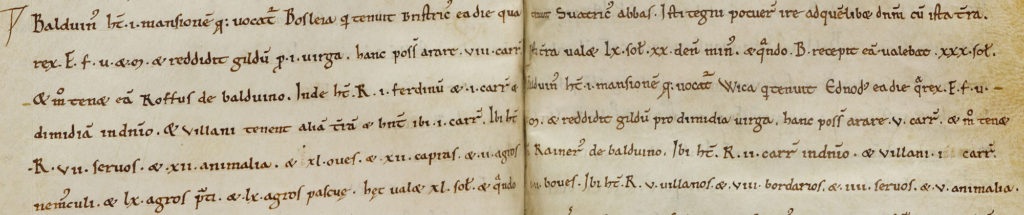 Balduin' ht .i. mansionē q; vocat' Bosleia q tenuit Bristric' ea die qua
rex .E. f. u. & m. & reddidit gildū p .i. virga. hanc poss' arare .viii. carr'
& m° tenet eā Roffus de balduino. Inde ht .R. i. ferdinū & .i. carr' &
dimidiā in dn̄io. & villani tenent aliā t'rā & hn̄t ibi .i. carr'. Ibi ht
R. vii. servos. & .xii. animalia. & xl. oves. & .xii. capras. & .ii. agros
nem̄culi. & .lx. agros p'ti. & .lx. agros pascuę. hęc valet xl. sol'. & q'ndo
Suatric' abbas. Isti tegni potuer' ire ad quēlibet dn̄m cū ista t'ra.
t'ra valet lx. sol'. xx. den' min'. & q'ndo .B. recepit eā valebat .xxx. sol'.
ht .i. mansionē q; vocat' Wica q tenuit Ednod' ea die q' rex .E. f. u.
m. & reddidit gildū pro dimidia virga. hanc poss' arare .v. carr'. & m° tenet
Rainer' de balduino. Ibi ht .R. ii. carr' in dn̄io. & villani .i. carr'.
boves. Ibi ht .R. v. villanos. & viii. bordarios. & .iiii. servos. & .v. animalia.